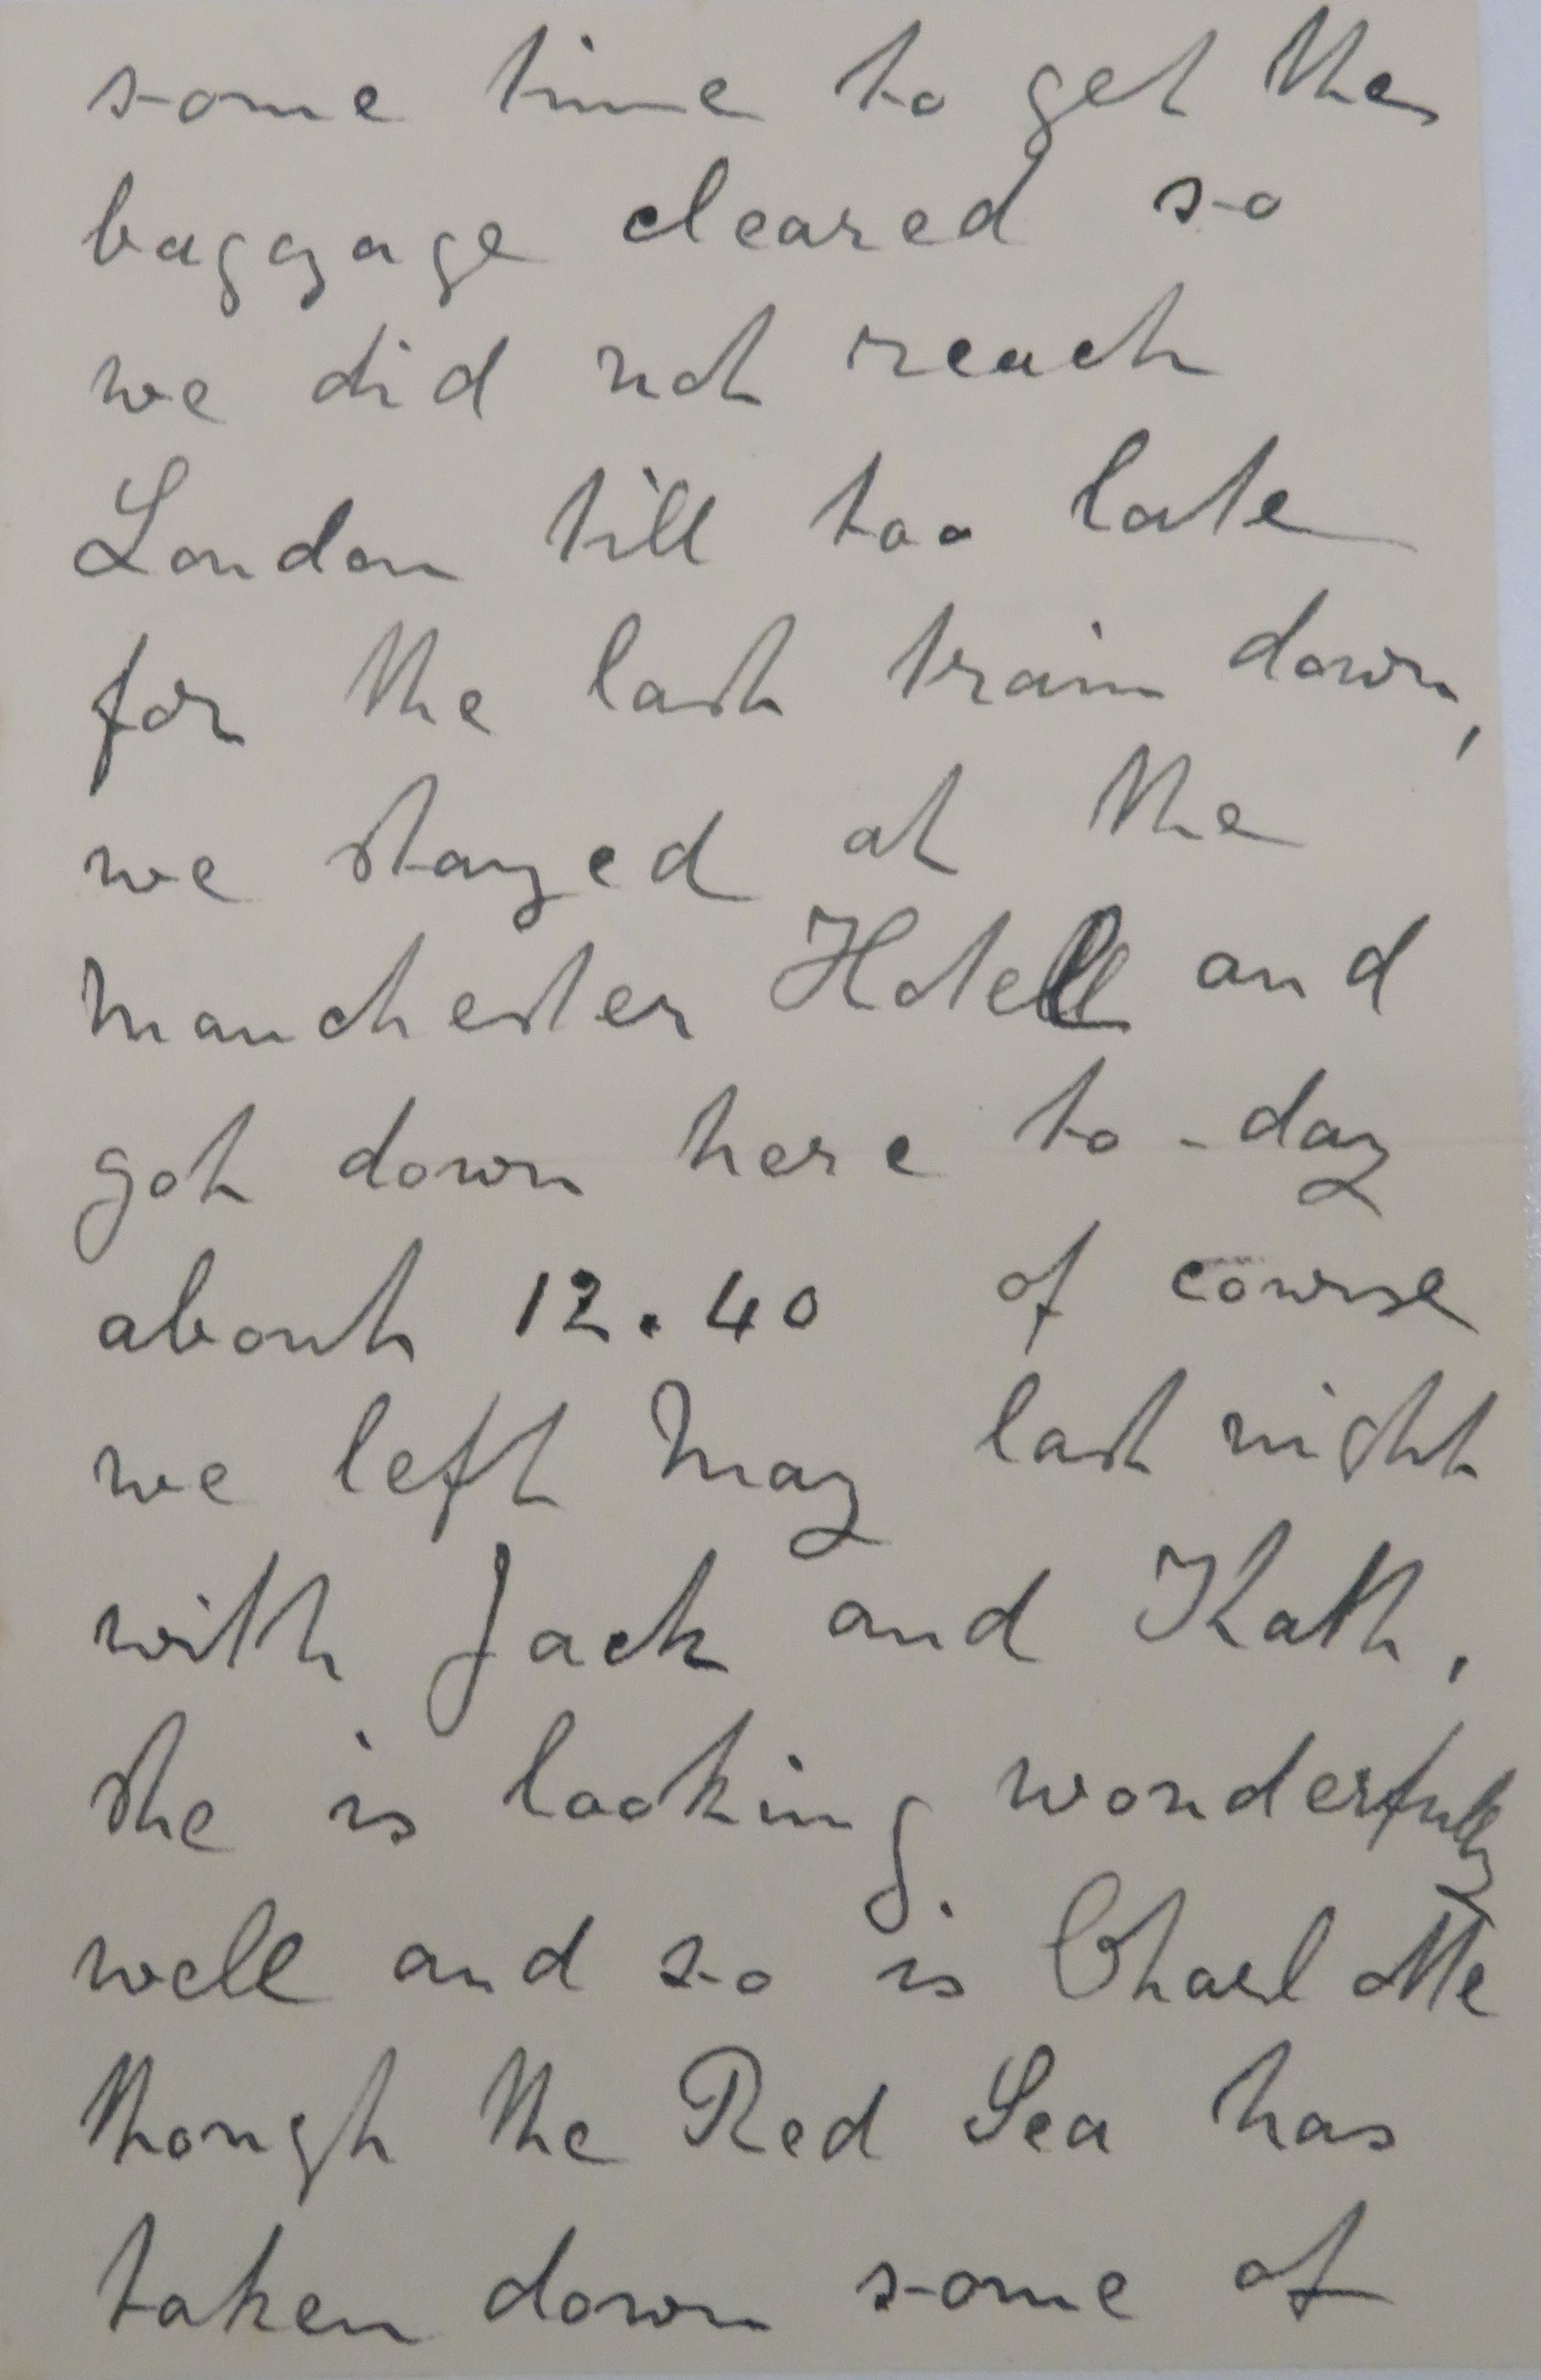 some time to get the
baggage cleared so
we did not reach
London till too late
for the last train down,
we stayed at the
Manchester Hotell and
got down here to-day
about 12.40 of course
we left May last night
with Jack and Kath,
she is looking wonderfully
well and so is Charlotte
though the Red Sea has
taken down some of